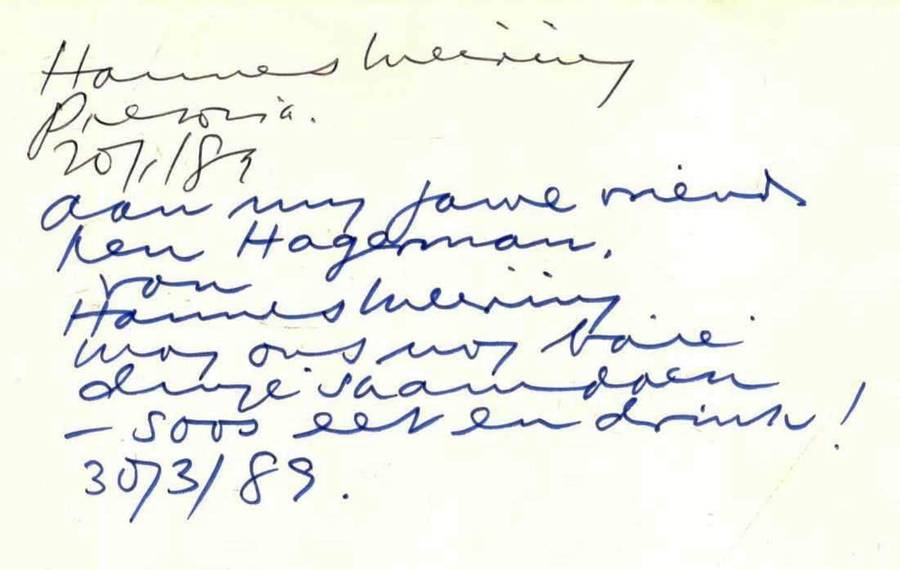 Hannes Meiring
Pretoria.
20/1/89
aan my jawe vriend
Ken Hagerman,
van
Hannes Meiring
mag ons nog baie
dinge saam doen
– soos eet en drink!
30/3/89.